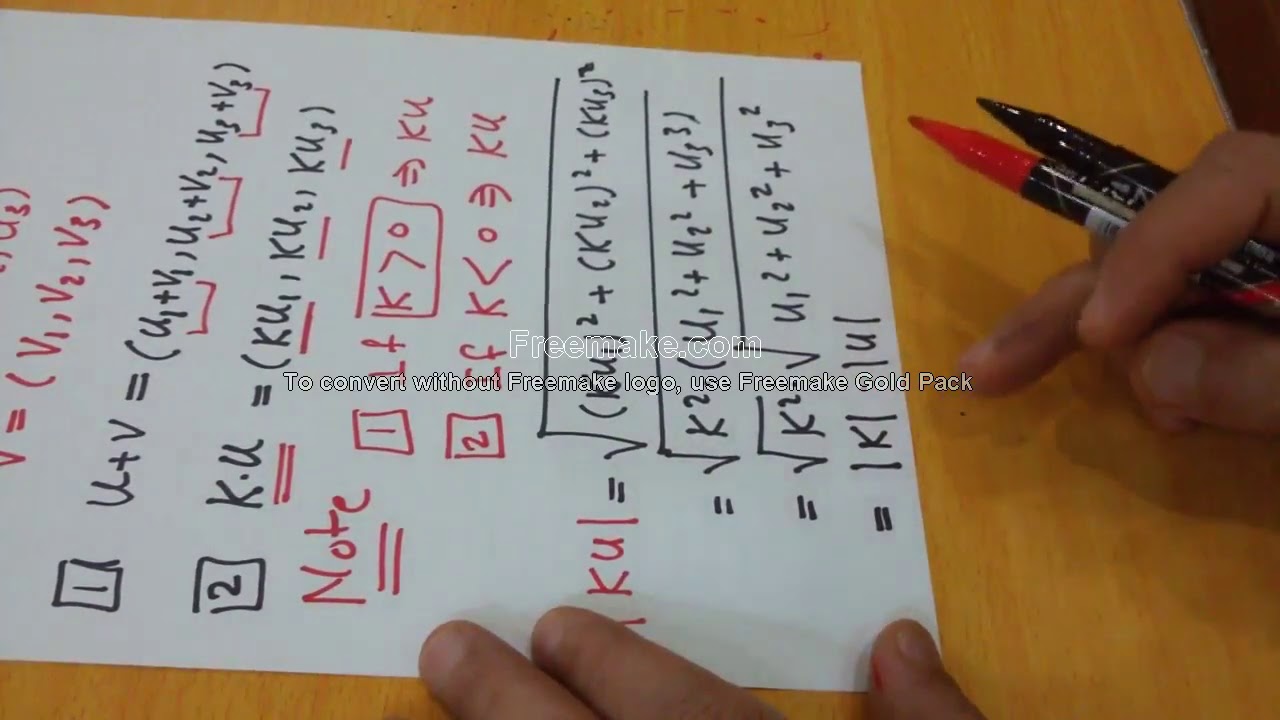 V = (V₁, V₂, V₃)
1 u+v = (u₁+v₁, u₂+v₂, u₃+v₃)
2 K.u = (Ku₁, Ku₂, Ku₃)
Note
1 If K>0 ⇒ Ku
2 If K<0 ⇒ Ku
|Ku| = √(Ku₁)² + (Ku₂)² + (Ku₃)²
= √K² (u₁² + u₂² + u₃3)
= √K² √u₁² + u₂² + u₃²
= |K| |u|
Freemake.com
To convert without Freemake logo, use Freemake Gold Pack